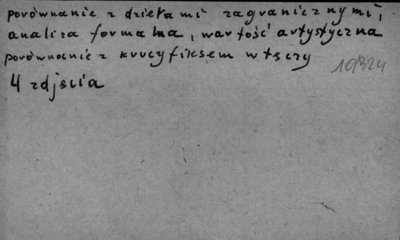 porównanie z dziełami zagranicznymi,
analiza formalna, wartość artystyczna
porównanie z krucyfiksem w tęczy
4 zdjęcia